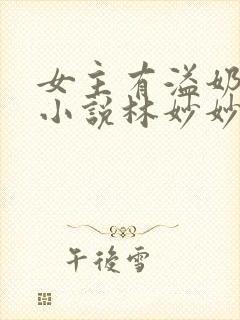 女主有溢奶
小說林妙妙
午後雪